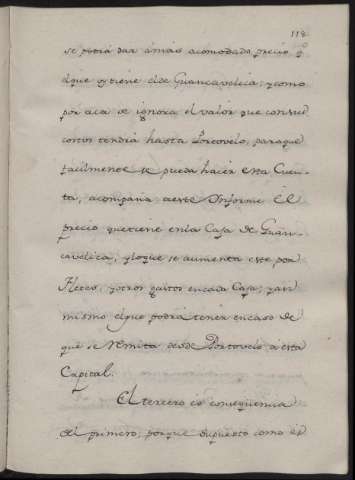 118
se podrá dar a más acomodado precio q.e
el que oy tiene el de Guancavelica; y como
por acá se ignora el valor que con sus
costos tendrá hasta Portovelo, para que
facilmente se pueda hacer esta Cuen-
ta, acompaña a este Informe el
precio que tiene en la Caja de Guan-
cavelica, y lo que se aumenta este por
fletes, y otros gastos en cada Caja; y an
mismo el que podrá tener en caso de
que se remita desde Portovelo a esta
Capital.
El tercero es consequencia
del primero; porque supuesto como es